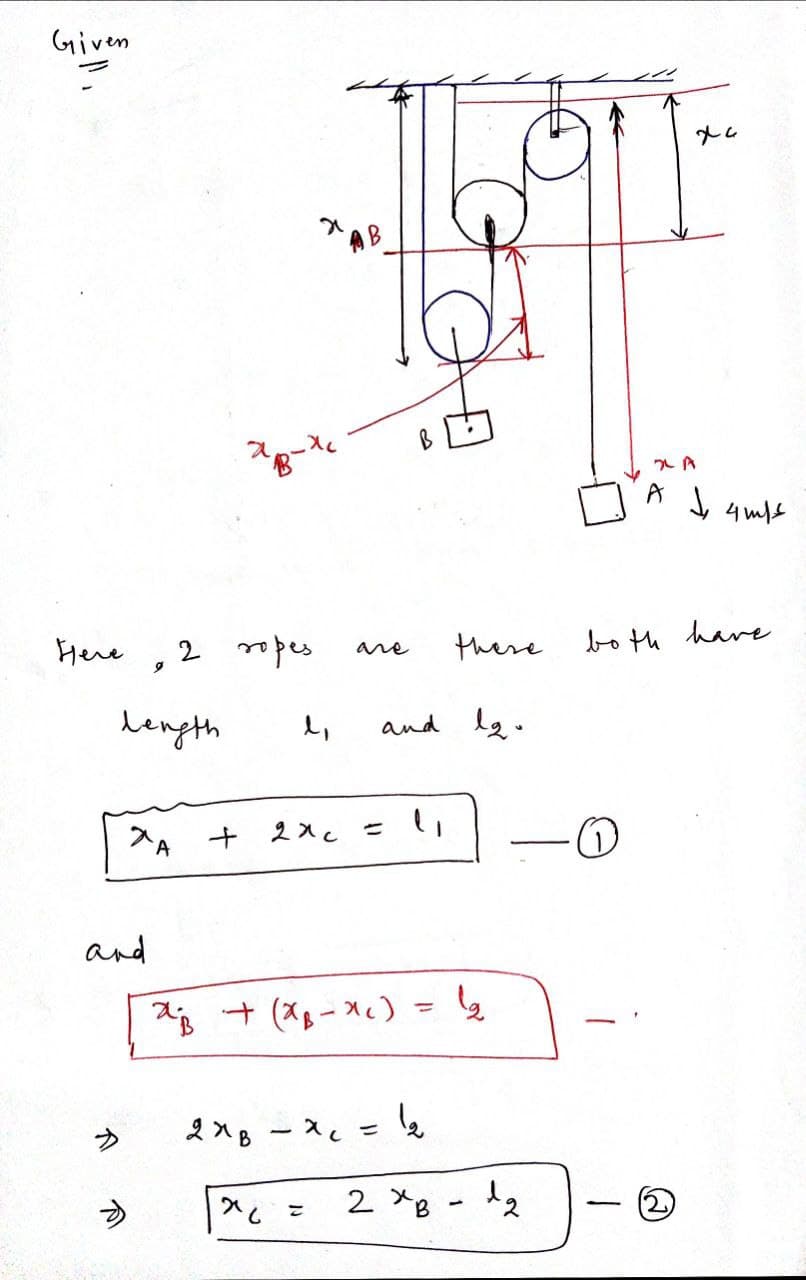 Given
x_C
x_AB
x_B-x_C
B
x_A
A ↓ 4m/s
Here, 2 ropes are there both have
length l₁ and l₂.
x_A + 2x_C = l₁ —①
and
x_B + (x_B-x_C) = l₂ —
⇒ 2x_B - x_C = l₂
⇒ x_C = 2x_B - l₂ —②